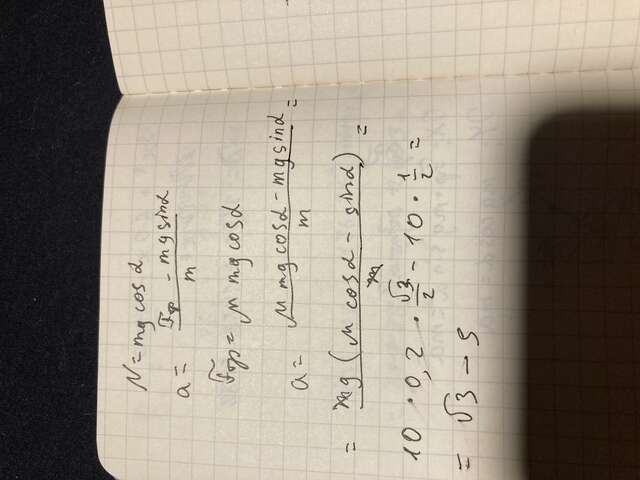 N = mg cos α
a = (Fтр - mg sin α) / m
Fтр = μ mg cos α
a = (μ mg cos α - mg sin α) / m =
= mg (μ cos α - sin α) / m =
10 · 0,2 · √3/2 - 10 · 1/2 =
= √3 - 5